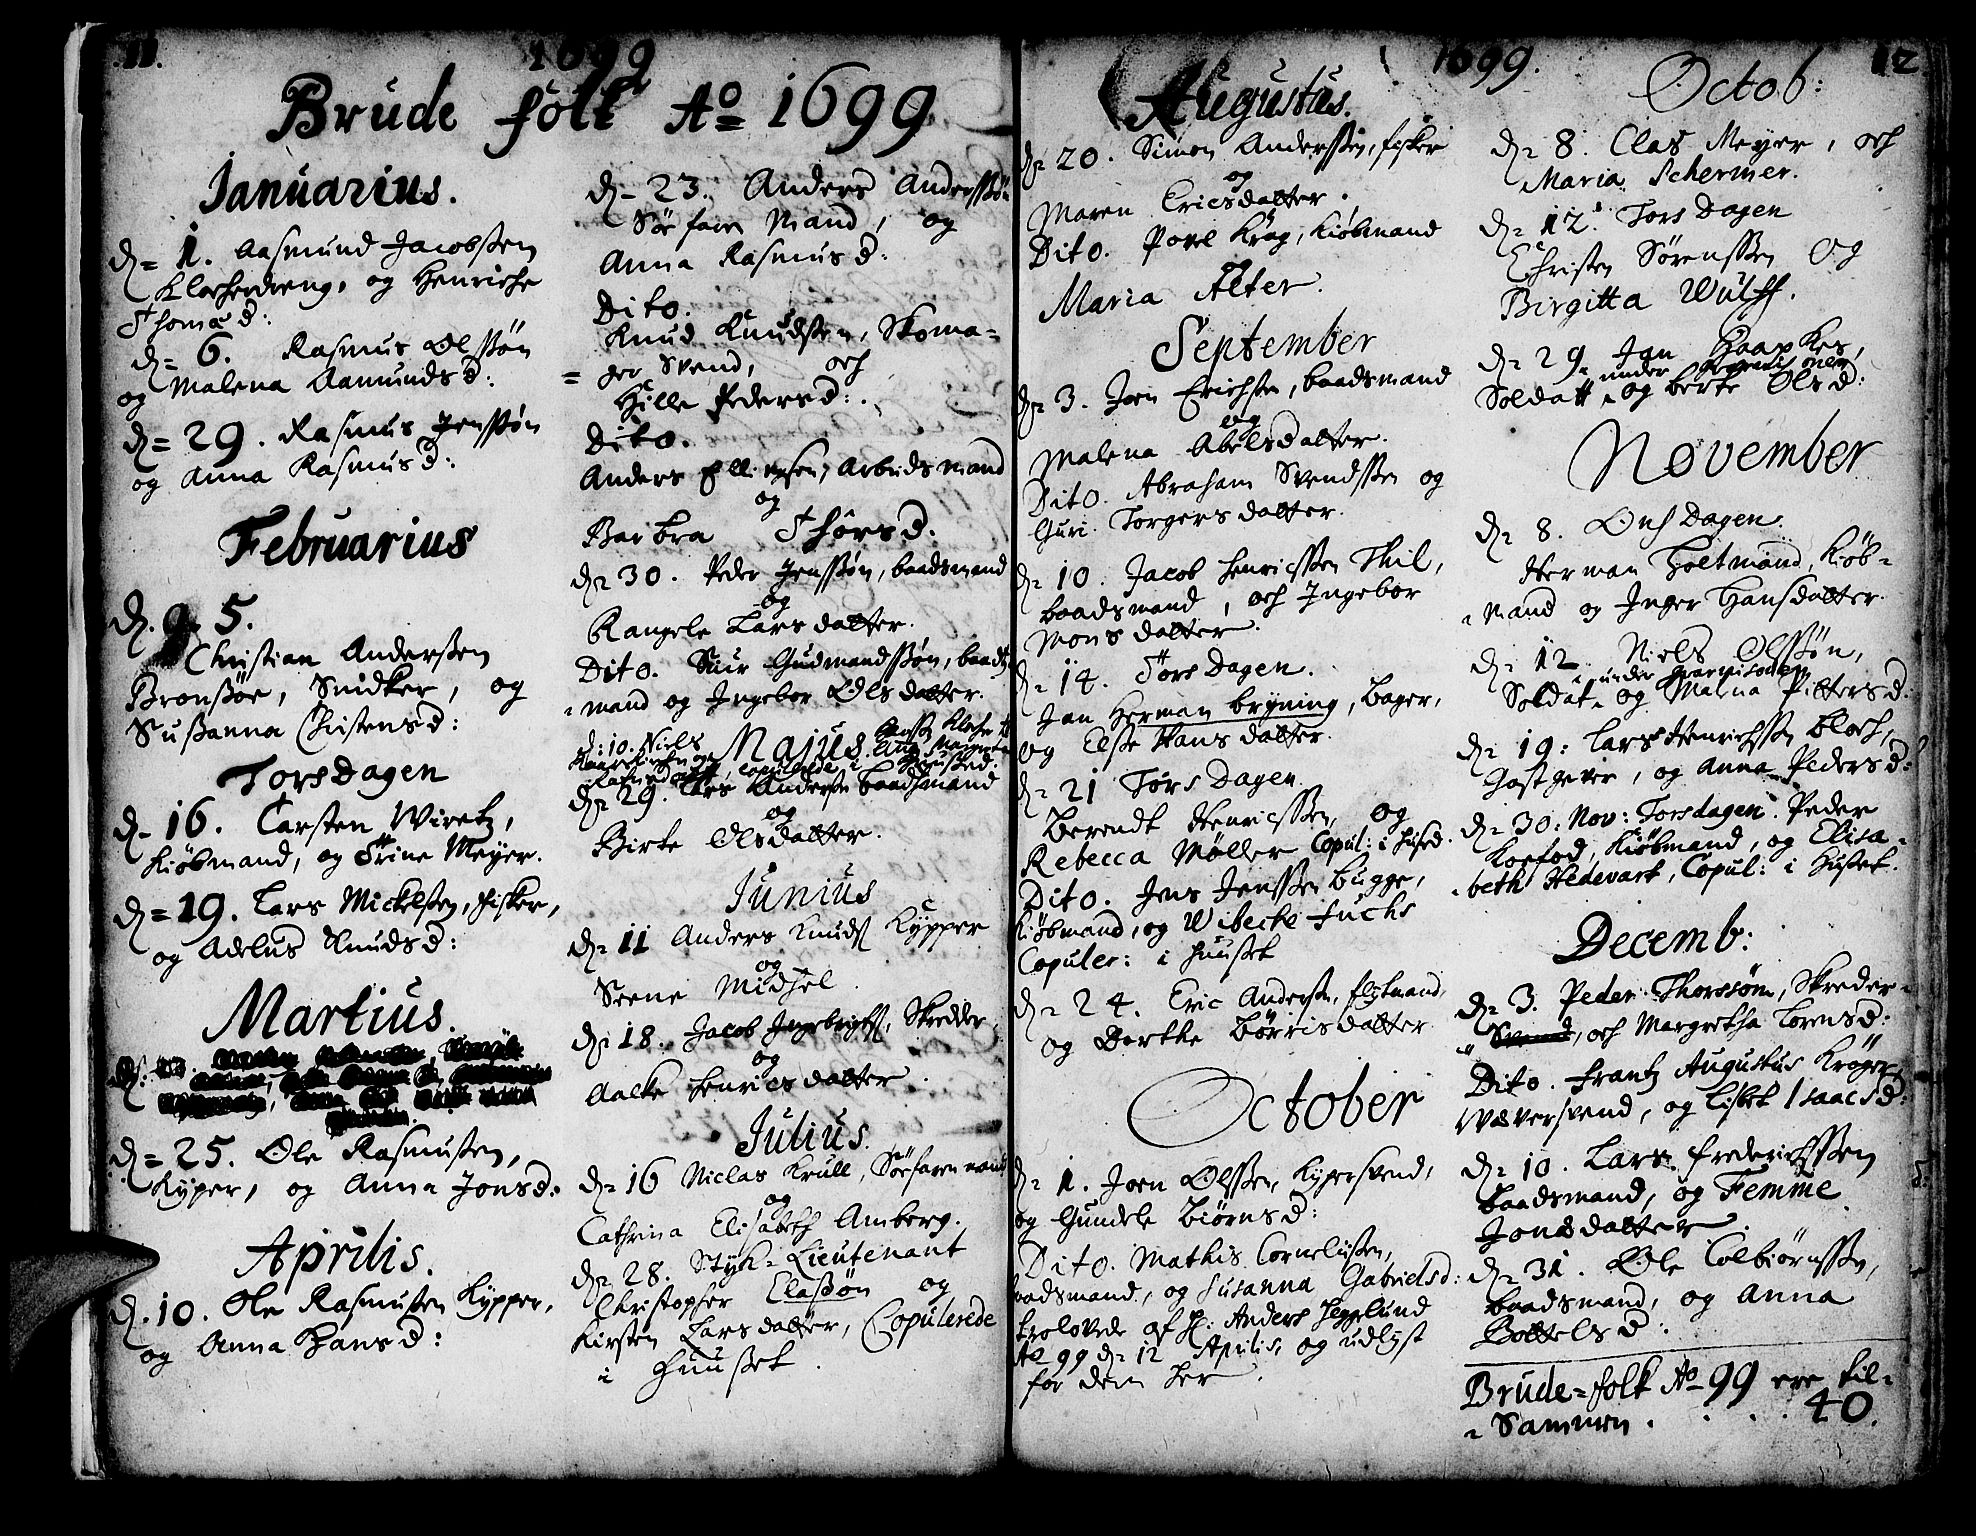 11.
1699
Brude folk Aº 1699
Ianuarius.
d= 1. Aasmund Jacobssen
Klocherdreng, og Henriche
Thomæd:
d= 6. Rasmus Olssøn
og Malena Aamundsd:
d= 29. Rasmus Jenssøn
og Anna Rasmusd:
Februarius
d. 5.
Christian Anderssen
Bronssøe, Snidker, og
Sussanna Christensd:
Torsdagen
d- 16. Carsten Wiretz,
Kiøbmand, og Trine Meyer.
d= 19. Lars Mickelssen, fisker,
og Adelus Knudsd:
Martius.
d= 25. Ole Rasmussen,
Kyper, og Anna Jonsd:
Aprilis.
d. 10. Ole Rasmussen Kypper,
og Anna Hansd:
d- 23. Anders Anderssøn
Søefaren Mand, og
Anna Rasmusd:
Dito.
Knud Knudssen, Skoma=
=ger Svend, och
Hille Pedersd:.
Dito.
Anders Ellingsen, Arbeidsmand
og
Barbra Thorsd:
d= 30. Peder Jenssøn, baadsmand
og
Rangele Larsdatter.
Dito. Siur Gudmandssøn, baads
=mand og Ingebor Olsdatter.
d: 10. Niels
Majus.
copulerede i
d= 29. Lars Anderssen baadsmand
og
Birte Olsdatter.
Iunius
d= 11 Anders Knuds Kypper
og
Seene Midhel.
d= 18. Jacob Ingebrigts, Skredder
og
Aalke Henricsdatter.
Iulius.
d= 16 Niclas Krull, Søefaren mand
og
Cathrina Elisabeth Amberg.
d= 28. Styk=Lieutenant
Christopher Elassøn og
Kirsten Larsdatter, Copulerede
i Huusset.
1699.
12
Augustus.
d= 20. Simon Anderssen, fisker
og
Maren Ericsdatter.
Dito. Povel Krag, Kiøbmand
Maria Alter.
September
d= 3. Joen Erichsen, baadsmand
og
Malena Abelsdatter.
Dito. Abraham Svendssen og
Guri Torgersdatter.
d= 10. Jacob Henricssen Thil,
baadsmand, och Ingebor
Monsdatter.
d= 14. Torsdagen.
Jan Herman bryning, Bager,
og Else Hansdatter.
d= 21 Torsdagen.
Berendt Henricssen, og
Rebecca Møller Copul: i Hused.
Dito. Jens Jenssen Bugge,
Kiøbmand, og Wibecke Fuchs
Copuler: i Huusset
d= 24. Eric Anderssen, fløtmand,
og Dorthe Børrisdatter.
October
d= 1. Joen Olssen, Kypersvend,
og Gundele Biørnsd:
Dito. Mathis Corneliissen,
baadsmand, og Susanna Gabrielsd:
trolovede af H: Anders Hegglund
Aº 99 d= 12 Aprilis, og udlyst
for dem her.
Octob:
d= 8. Clas Meyer, och
Maria Schermer.
d= 12. Torsdagen
Christen Sørenssen og
Birgitta Wulff.
d= 29. Jan Haapkes,
under Garnisonen
Soldatt, og berte Olsd:
November
d= 8. Onsdagen.
Herman Holtmand, Kiøb=
=mand og Inger Hansdatter.
d= 12. Niels Olssøn,
under Garnisonen
Soldat, og Malna Pittersd:
d= 19: Lars Henrichssen Bloch,
Gastgever, og Anna Pedersd:
d= 30: Nov: Torsdagen. Peder
Koefod, Kiøbmand, og Elisa=
=beth Hedevart, Copul: i Husset.
Decemb:
d= 3. Peder Thorssøm, Skreder=
=Svend, och Margretha Lorensd:
Dito. Frantz Augustus Krøger,
Wæversvend, og Lisbet Isaacsd:
d= 10. Lars Frederichssen
baadsmand, og Femme
Jonædatter.
d= 31. Ole Colbiørnssen,
baadsmand, og Anna
Bottelsd:
Brude=folk Aº 99 ere til=
=Sammen . . . . 40.